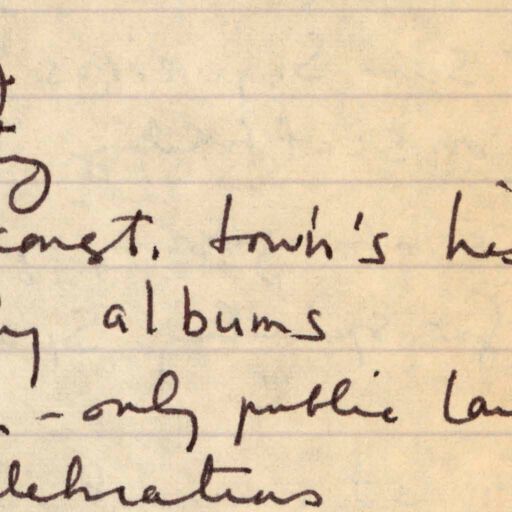 const. town's his
albums
- only public lan
celebrations